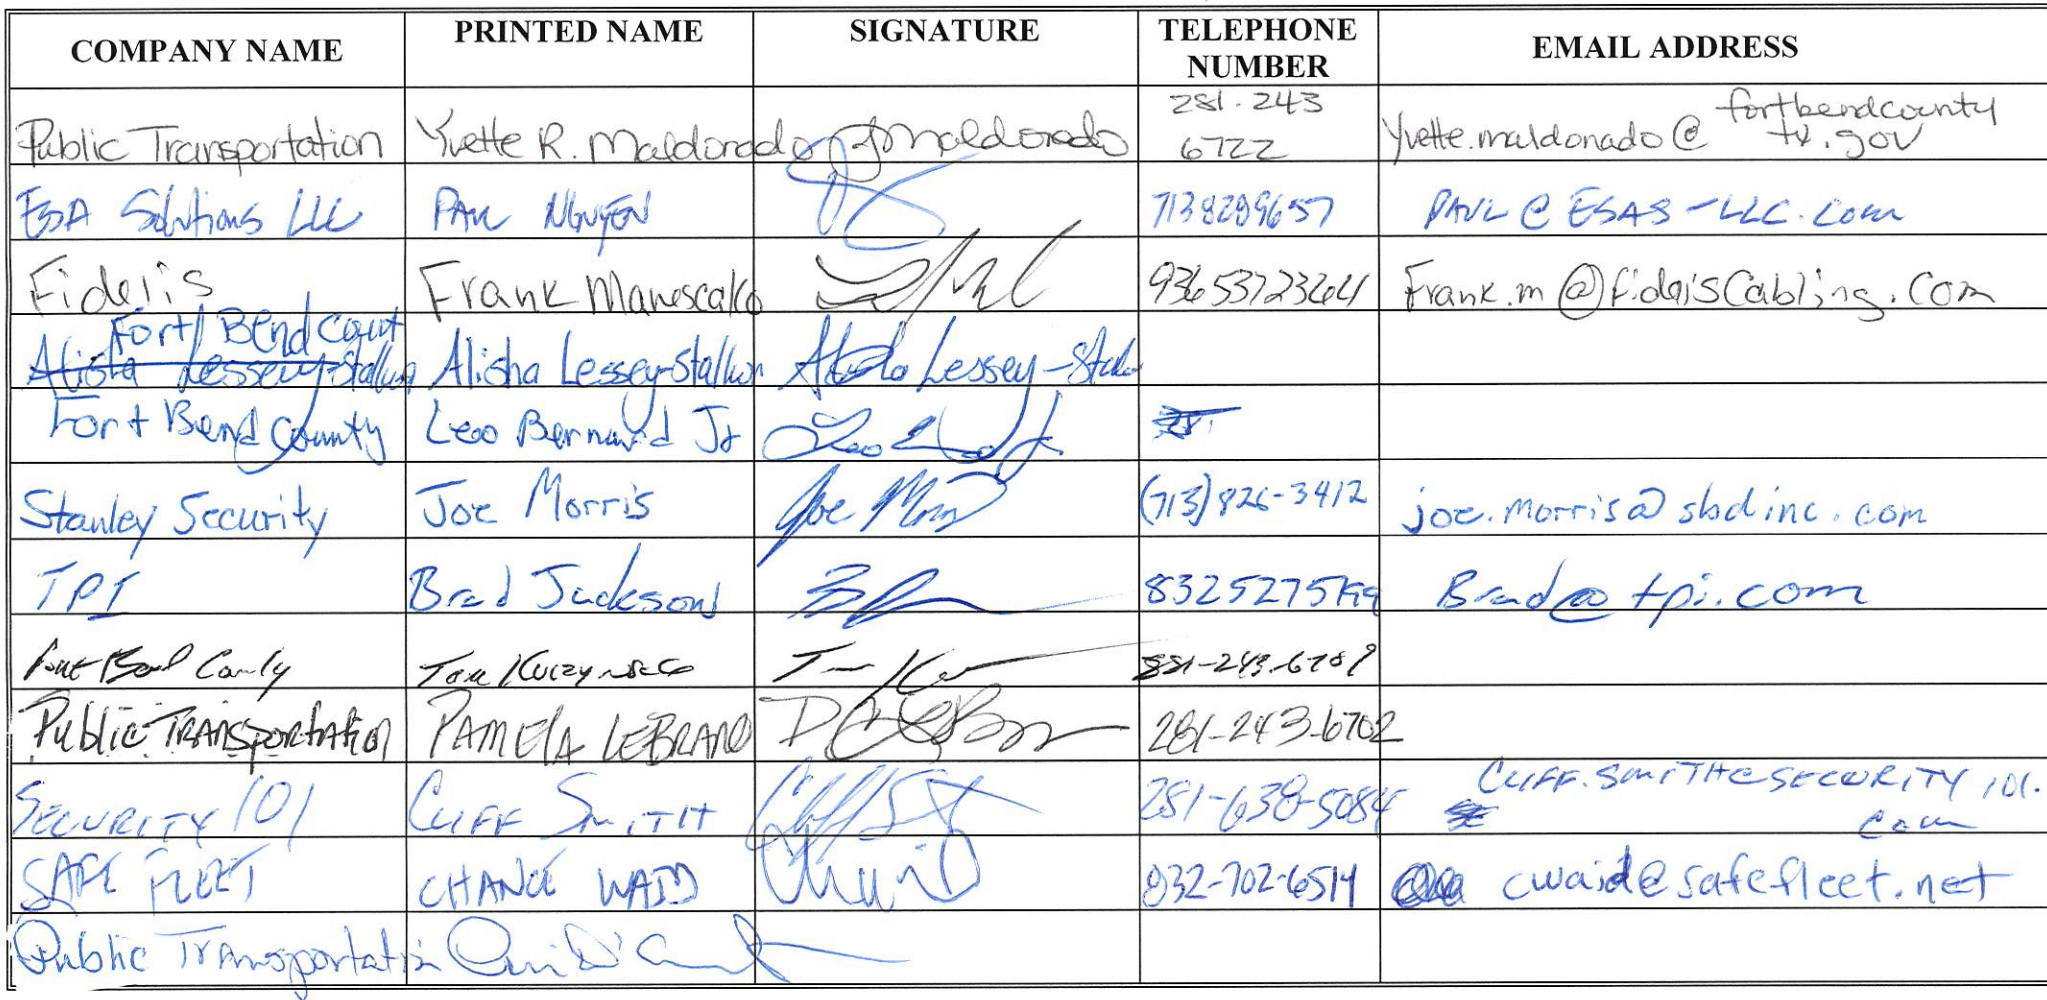 COMPANY NAME PRINTED NAME SIGNATURE TELEPHONE NUMBER EMAIL ADDRESS
Public Transportation Yvette R. Maldonado YMaldonado 281-243 6722 Yvette.maldonado@ fortbendcounty tx.gov
ESA Solutions LLC PAUL NGUYEN 7138289657 PAUL@ESAS-LLC.com
Fidelis Frank 9365372364 Frank.m@fidelisCabling.Com
Fort Bend Count
Alisha Lessey-Stallworth Alisha Lessey-Stallworth Alisha Lessey-Stal
Fort Bend County Leo Bernard Jr Leo
Stanley Security Joe Morris Joe Morris (713)826-3412 joe.morris@sbdinc.com
TPI Brad Jackson Brad@tpi.com
Fort Bend County 281-243-6789
Public TRANSPORTATION PAMELA LEBRANE 281-243-6702
SECURITY 101 CLIFF SMITH 281-638-5084 CLIFF.SMITH@SECURITY101.
com
SAFE FLEET CHANCE WAID 832-702-6514 cwaid@safefleet.net
Public Transportation